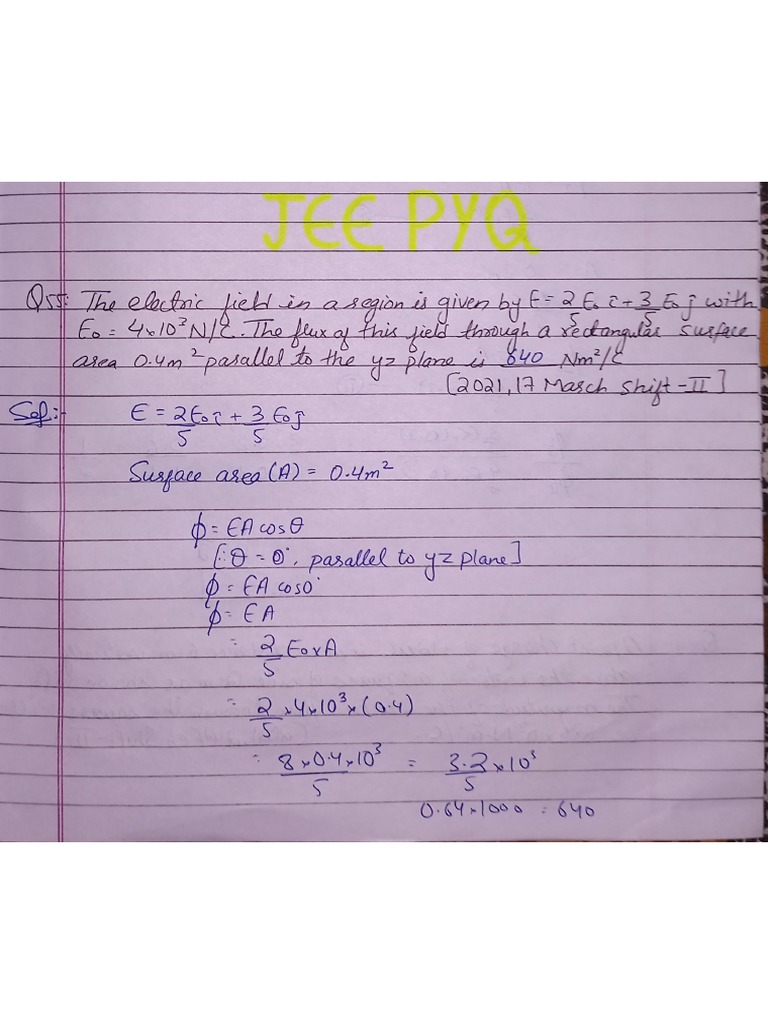 JEE PYQ
Q55: The electric field in a region is given by E = 2/5 E₀ î + 3/5 E₀ ĵ with
E₀ = 4×10³ N/C. The flux of this field through a rectangular surface
area 0.4m² parallel to the yz plane is 640 Nm²/C
[2021, 17 March Shift-II]
Sol:- E = 2E₀ î/5 + 3/5 E₀ ĵ
Surface area (A) = 0.4m²
ϕ = EA cosθ
[∵ θ = 0°, parallel to yz plane]
ϕ = EA cos0°
ϕ = EA
= 2/5 E₀×A
= 2/5 ×4×10³×(0.4)
= 8×0.4×10³/5 = 3.2×10³/5
0.64×1000 = 640